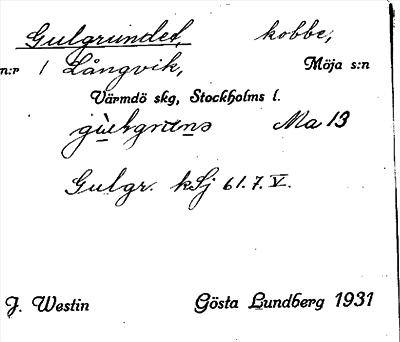 Gulgrundet, kobbe,
n:r 1 Långvik, Möja s:n
Värmdö skg, Stockholms l.
Ma 13
Gulgr. kSj 61.7.V.
J. Westin Gösta Lundberg 1931